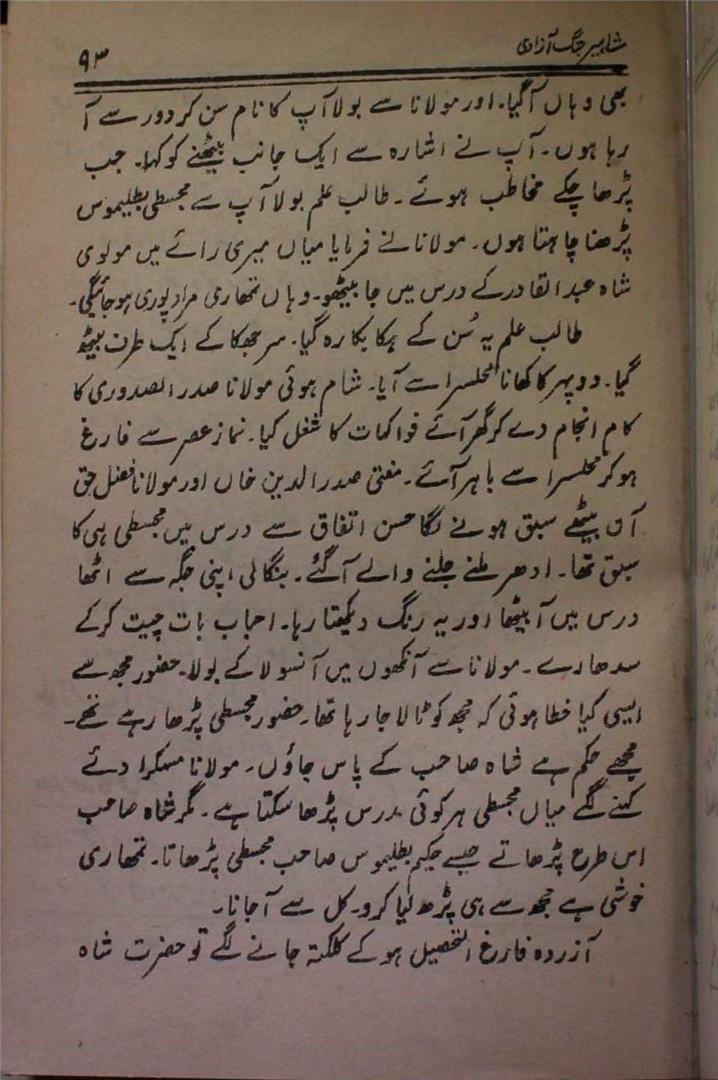 مشاہیر جنگ آزادی
۹۳
بھی وہاں آگیا۔ اور مولانا سے بولا آپ کا نام سن کر دور سے آ
رہا ہوں۔ آپ نے اشارہ سے ایک جانب بیٹھنے کو کہا۔ جب
پڑھا چکے مخاطب ہوئے۔ طالب علم بولا آپ سے مجسطی بطلیموس
پڑھنا چاہتا ہوں۔ مولانا نے فرمایا میاں میری رائے میں مولوی
شاہ عبدالقادر کے درس میں جا بیٹھو۔ وہاں تمھاری مراد پوری ہو جائیگی۔
طالب علم یہ سُن کے ہکا بکا رہ گیا۔ سر جھکا کے ایک طرف بیٹھ
گیا۔ دوپہر کا کھانا محلسرا سے آیا۔ شام ہوئی مولانا صدر الصدوری کا
کام انجام دے کر گھر آئے فواکہات کا شغل کیا۔ نماز عصر سے فارغ
ہو کر محلسرا سے باہر آئے۔ مفتی صدرالدین خاں اور مولانا فضل حق
آن بیٹھے سبق ہونے لگا حسن اتفاق سے درس میں مجسطی ہی کا
سبق تھا۔ ادھر ملنے جلنے والے آگئے۔ بنگالی اپنی جگہ سے اٹھا
درس میں آ بیٹھا اور یہ رنگ دیکھتا رہا۔ احباب بات چیت کرکے
سدھارے۔ مولانا سے آنکھوں میں آنسو لا کے بولا۔ حضور مجھ سے
ایسی کیا خطا ہوئی کہ مجھ کو ٹالا جا رہا تھا۔ حضور مجسطی پڑھا رہے تھے۔
مجھے حکم ہے شاہ صاحب کے پاس جاؤں۔ مولانا مسکرا دئے
کہنے لگے میاں مجسطی ہر کوئی مدرس پڑھا سکتا ہے۔ مگر شاہ صاحب
اس طرح پڑھاتے جیسے حکیم بطلیموس صاحب مجسطی پڑھاتا۔ تمھاری
خوشی ہے مجھ سے ہی پڑھ لیا کرو۔ کل سے آجانا۔
آزردہ فارغ التحصیل ہو کے کلکتہ جانے لگے تو حضرت شاہ